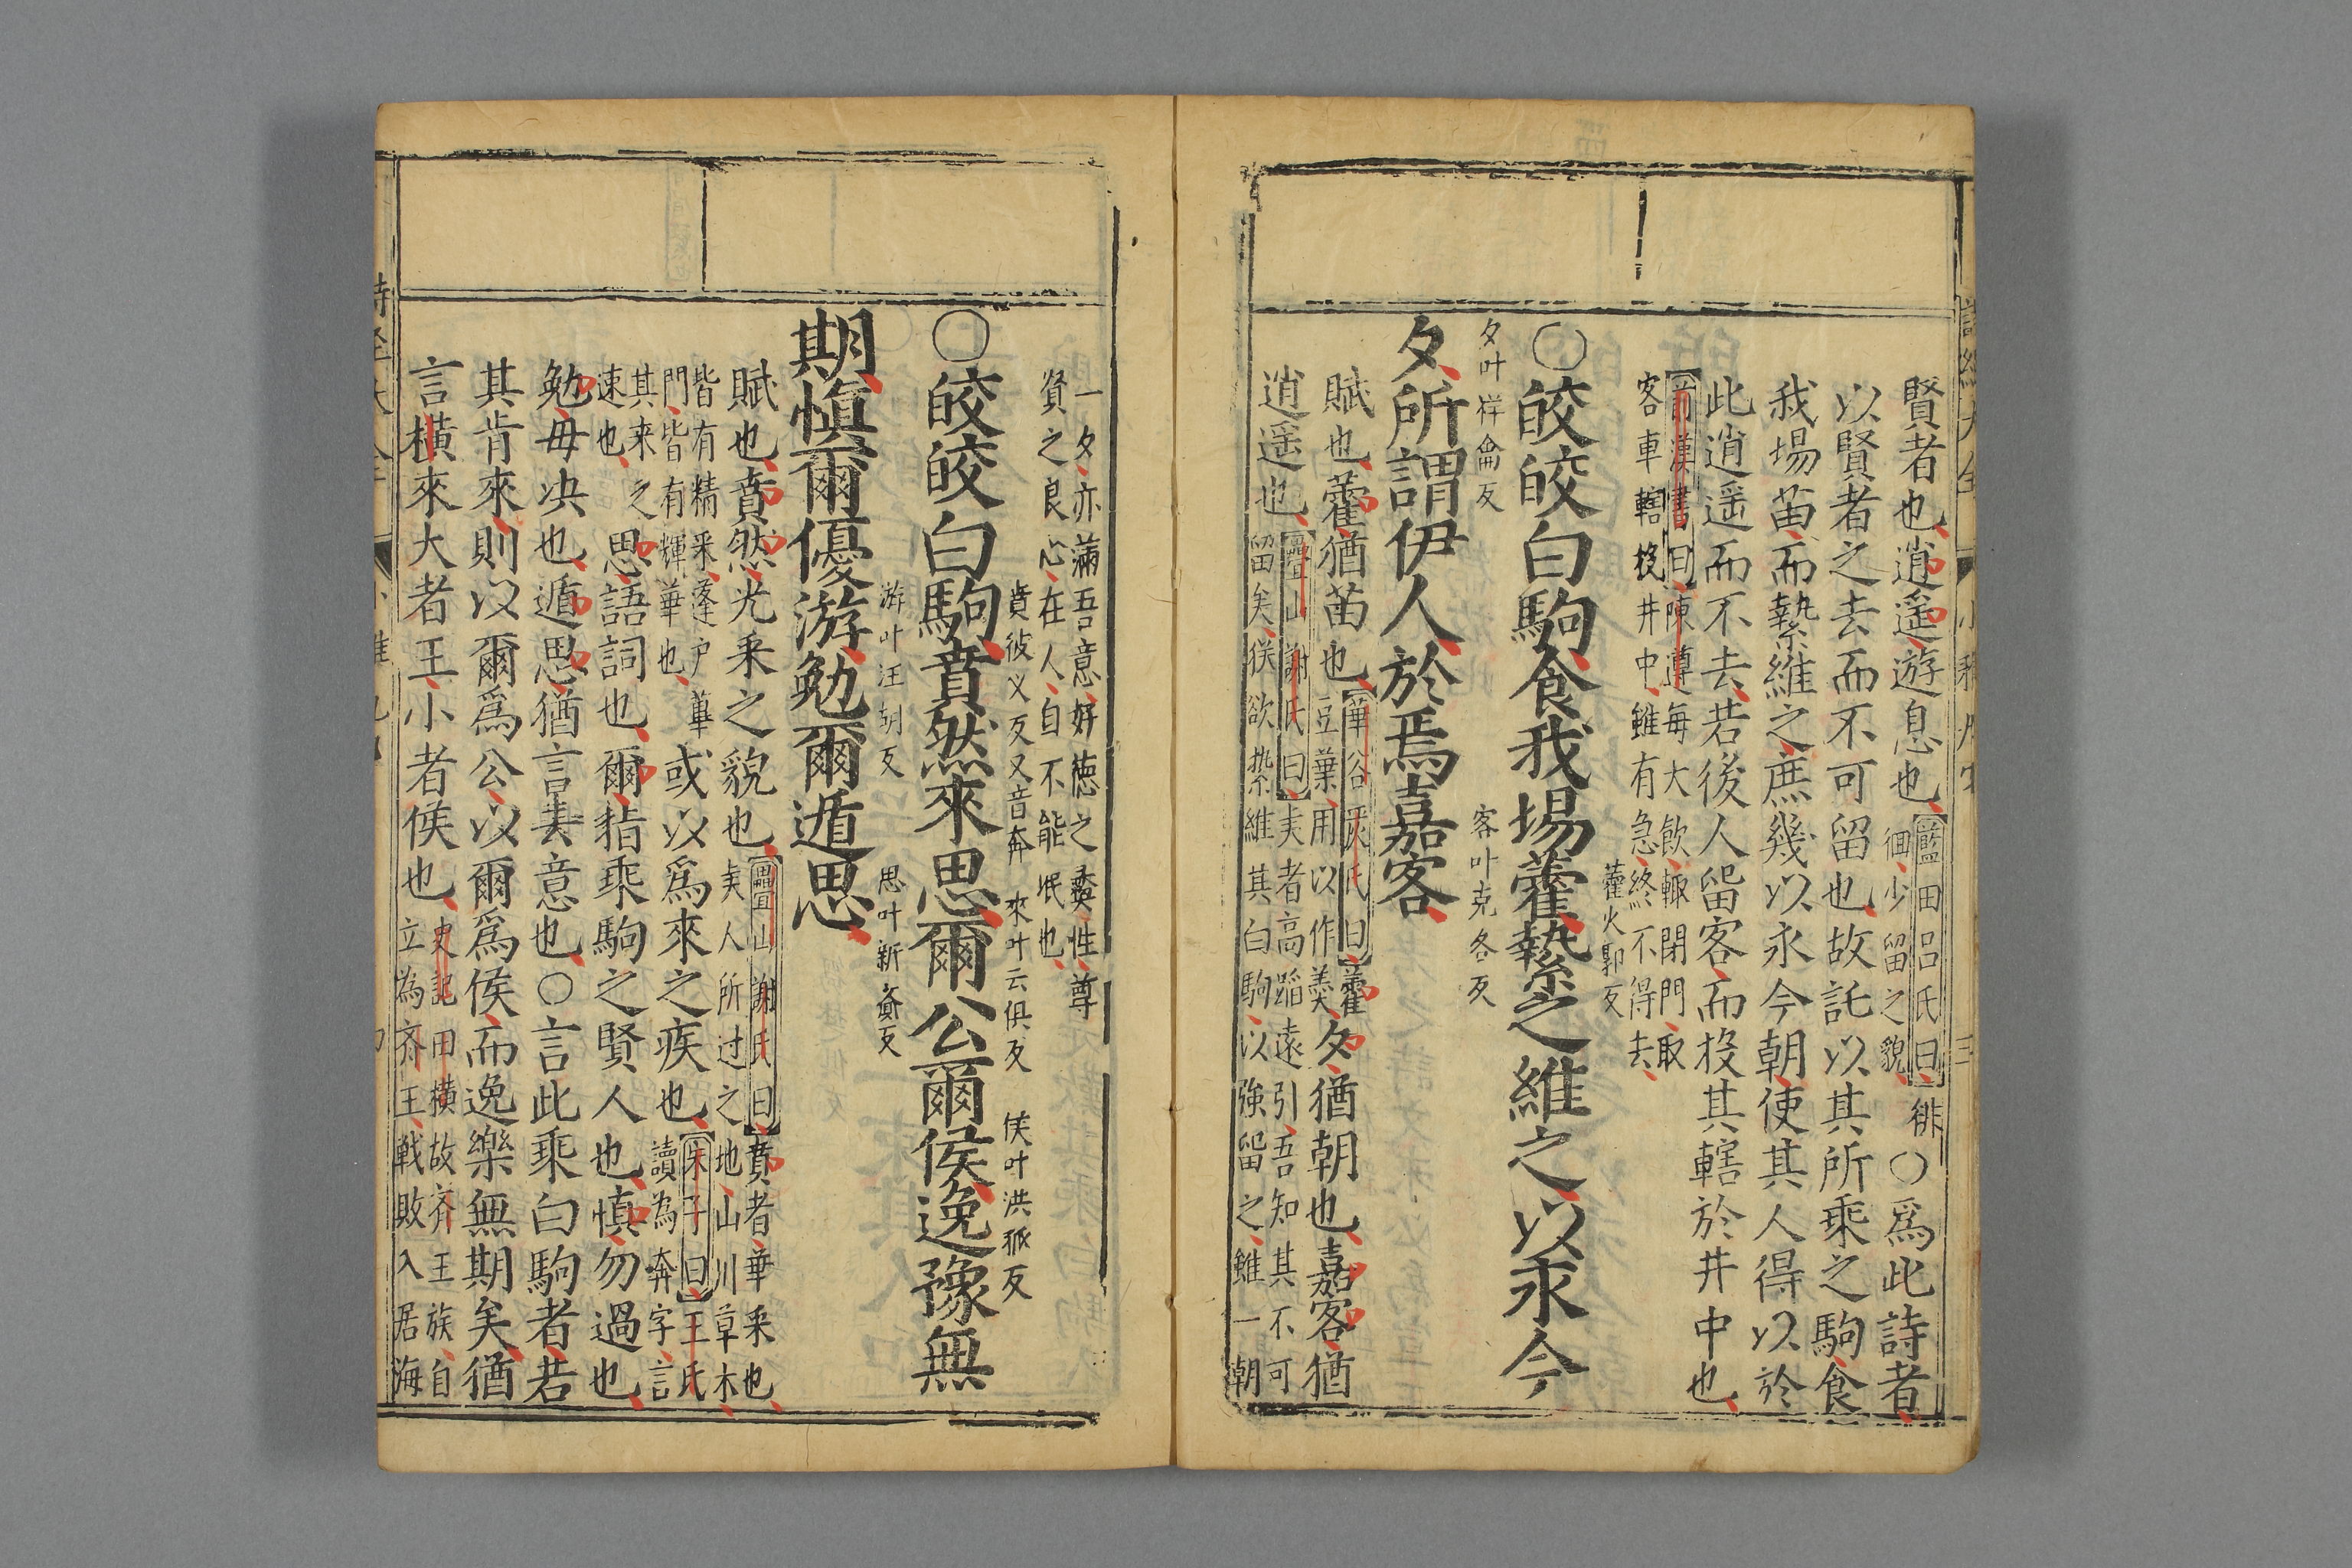 賢者也逍遥遊息也藍田吕氏曰徘徊少留之貌○爲此詩者
以賢者之去而不可留也故託以其所乘之駒食
我場苗而縶維之庶幾以永今朝使其人得以於
此逍遥而不去若後人留客而投其轄於井中也
前漢書曰陳遵每大飲輙閉門取
客車轄投井中雖有急終不得去
藿火郭反
○皎皎白駒食我場藿縶之維之以永今
夕叶祥龠反
客叶克各反
夕所謂伊人於焉嘉客
賦也藿猶苗也華谷嚴氏曰藿豆葉用以作羮夕猶朝也嘉客猶
逍遥也疊山謝氏曰夫者高蹈遠引吾知其不可
留矣猶欲縶維其白駒以強留之雖一朝
一夕亦滿吾意好徳之彜性尊
賢之良心在人自不能泯也
賁彼义反又音奔 來叶云俱反 侯叶洪孤反
○皎皎白駒賁然來思爾公爾侯逸豫無
游叶汪胡反 思叶新賫反
期慎爾優游勉爾遁思
賦也賁然光采之貌也疊山謝氏曰賁者華采也
夫人所过之地山川草木
皆有精采蓬户蓽
門皆有輝華也或以爲來之疾也朱子曰王氏
讀為奔字言
其来之
速也思語詞也爾指乘駒之賢人也慎勿過也
勉毋决也遁思猶言去意也○言此乘白駒者若
其肯來則以爾爲公以爾爲侯而逸樂無期矣猶
言横來大者王小者侯也史記田横故齐王族自
立為齐王戦敗入居海